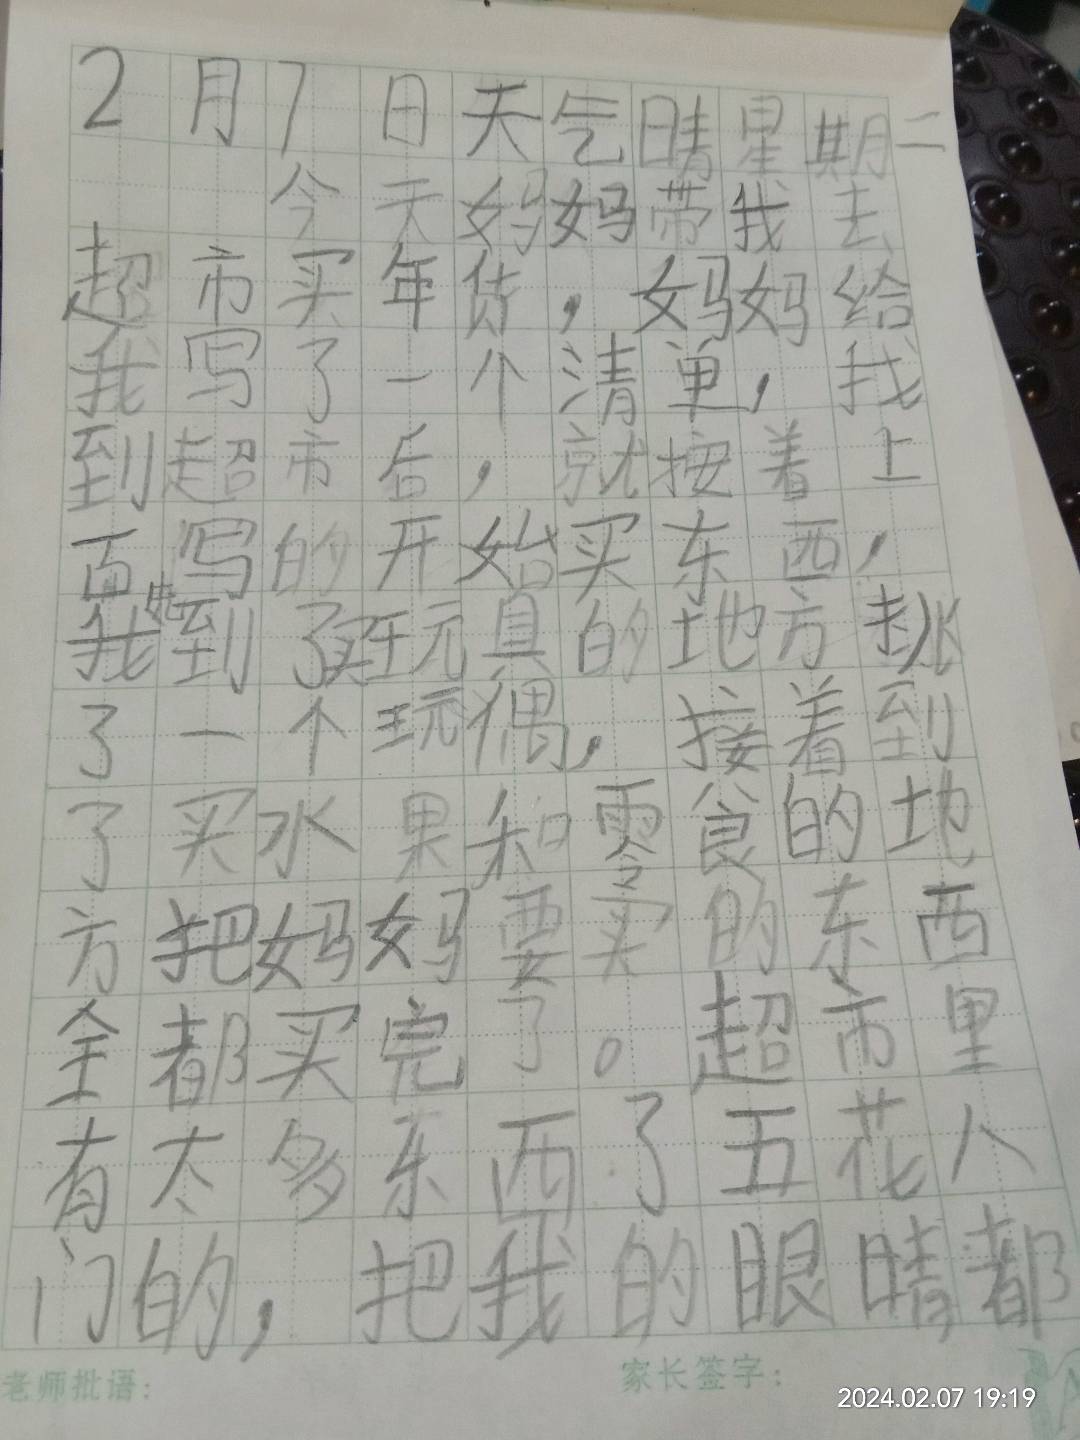 2月7日天气晴星期二
今天妈妈带我去
超市买年货，妈妈给
我写了一个清单，我
到超市后，就按着上
面写的开始买东西，
我先到了买玩具的地方挑
了一个玩偶，接着到
了买水果和零食的地
方把妈妈要买的东西
全都买完了。超市里
有太多东西了五花八
门的，把我的眼睛都
老师批语：
家长签字：
2024.02.07 19:19